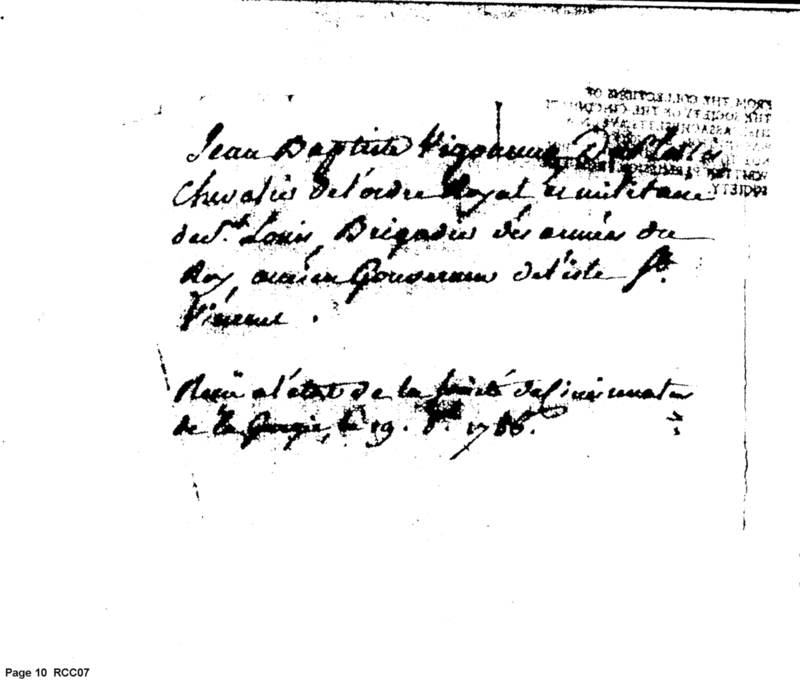 FROM THE COLLECTIONS OF
THE SOCIETY OF THE CINCINNATI
SOCIETY
Jean Baptiste Vigoureux Duplessis
Chevalier de l'ordre Royal et militaire
de St. Louis, Brigadier des armées du
Roy, ancien Gouverneur de l'isle St.
Vincent.
Reçu a l'état de la société de Cincinnatus
de la Georgie, le 19. 1786.
Page 10 RCC07